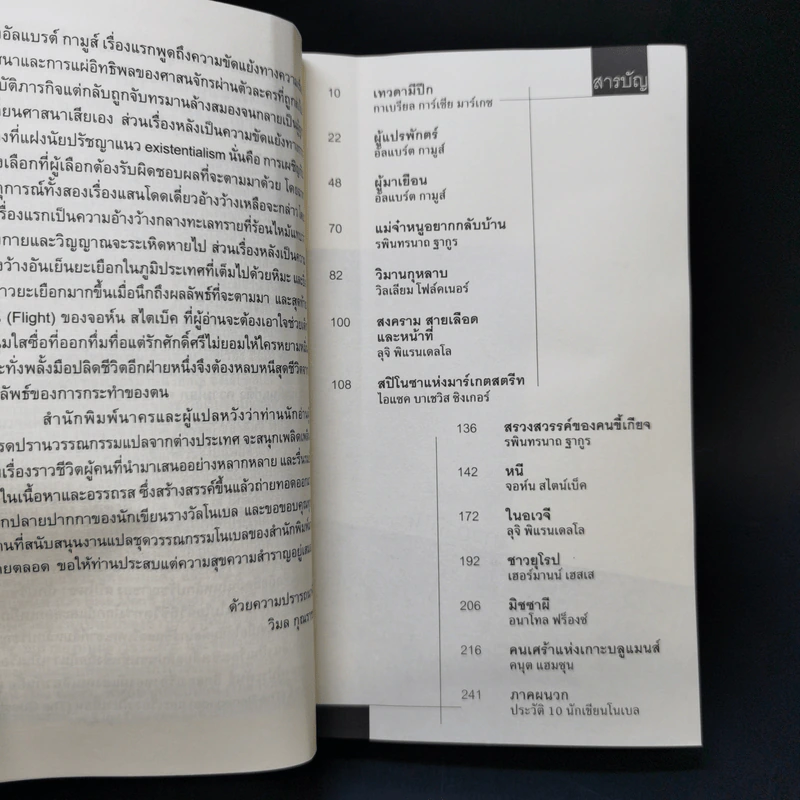 อัลแบรต์ กามูส์ เรื่องแรกพูดถึงความขัดแย้งทางความ
สนาและการแผ่อิทธิพลของศาสนจักรผ่านตัวละครที่ถูก
บัติภารกิจแต่กลับถูกจับทรมานล้างสมองจนกลายเป็น
ยนศาสนาเสียเอง ส่วนเรื่องหลังเป็นความขัดแย้ง
งที่แฝงนัยปรัชญาแนว existentialism นั่นคือ การเผชิญ
งเลือกที่ผู้เลือกต้องรับผิดชอบผลที่จะตามมาด้วย
ตุการณ์ทั้งสองเรื่องแสนโดดเดี่ยวอ้างว้างเหลือจะกล่าว
รื่องแรกเป็นความอ้างว้างกลางทะเลทรายที่ร้อนไหม้
งกายและวิญญาณจะระเหิดหายไป ส่วนเรื่องหลังเป็น
งว้างอันเย็นยะเยือกในภูมิประเทศที่เต็มไปด้วยหิมะ
าวยะเยือกมากขึ้นเมื่อนึกถึงผลลัพธ์ที่จะตามมา และ
(Flight) ของจอห์น สไตเบ็ค ที่ผู้อ่านจะต้องเอาใจช่วย
มใสซื่อที่ออกทึ่มทื่อแต่รักศักดิ์ศรีไม่ยอมให้ใครหยาม
ะทั่งพลั้งมือปลิดชีวิตอีกฝ่ายหนึ่งจึงต้องหลบหนีสุดชีวิต
ลัพธ์ของการกระทำของตน
สำนักพิมพ์นาครและผู้แปลหวังว่าท่านนักอ่าน
รดปรานวรรณกรรมแปลจากต่างประเทศ จะสนุกเพลิดเพลิน
เรื่องราวชีวิตผู้คนที่นำมาเสนออย่างหลากหลาย และ
ในเนื้อหาและอรรถรส ซึ่งสร้างสรรค์ขึ้นแล้วถ่ายทอด
กปลายปากกาของนักเขียนรางวัลโนเบล และขอขอบคุณ
านที่สนับสนุนงานแปลชุดวรรณกรรมโนเบลของสำนักพิมพ์
ยตลอด ขอให้ท่านประสบแต่ความสุขความสำราญอยู่
ด้วยความปรารถนา
วิมล กุณราชา
สารบัญ
10 เทวดามีปีก
กาเบรียล การ์เซีย มาร์เกซ
22 ผู้แปรพักตร์
อัลแบร์ต กามูส์
48 ผู้มาเยือน
อัลแบร์ต กามูส์
70 แม่จ๋าหนูอยากกลับบ้าน
รพินทรนาถ ฐากูร
82 วิมานกุหลาบ
วิลเลียม โฟล์คเนอร์
100 สงคราม สายเลือด
และหน้าที่
ลุจิ พิแรนเดลโล
108 สปิโนซาแห่งมาร์เกตสตรีท
ไอแซค บาเชวิส ซิงเกอร์
136 สรวงสวรรค์ของคนขี้เกียจ
รพินทรนาถ ฐากูร
142 หนี
จอห์น สไตน์เบ็ค
172 ในอเวจี
ลุจิ พิแรนเดลโล
192 ชาวยุโรป
เฮอร์มานน์ เฮสเส
206 มิซซาผี
อนาโทล ฟร็องซ์
216 คนเศร้าแห่งเกาะบลูแมนส์
คนุต แฮมซุน
241 ภาคผนวก
ประวัติ 10 นักเขียนโนเบล